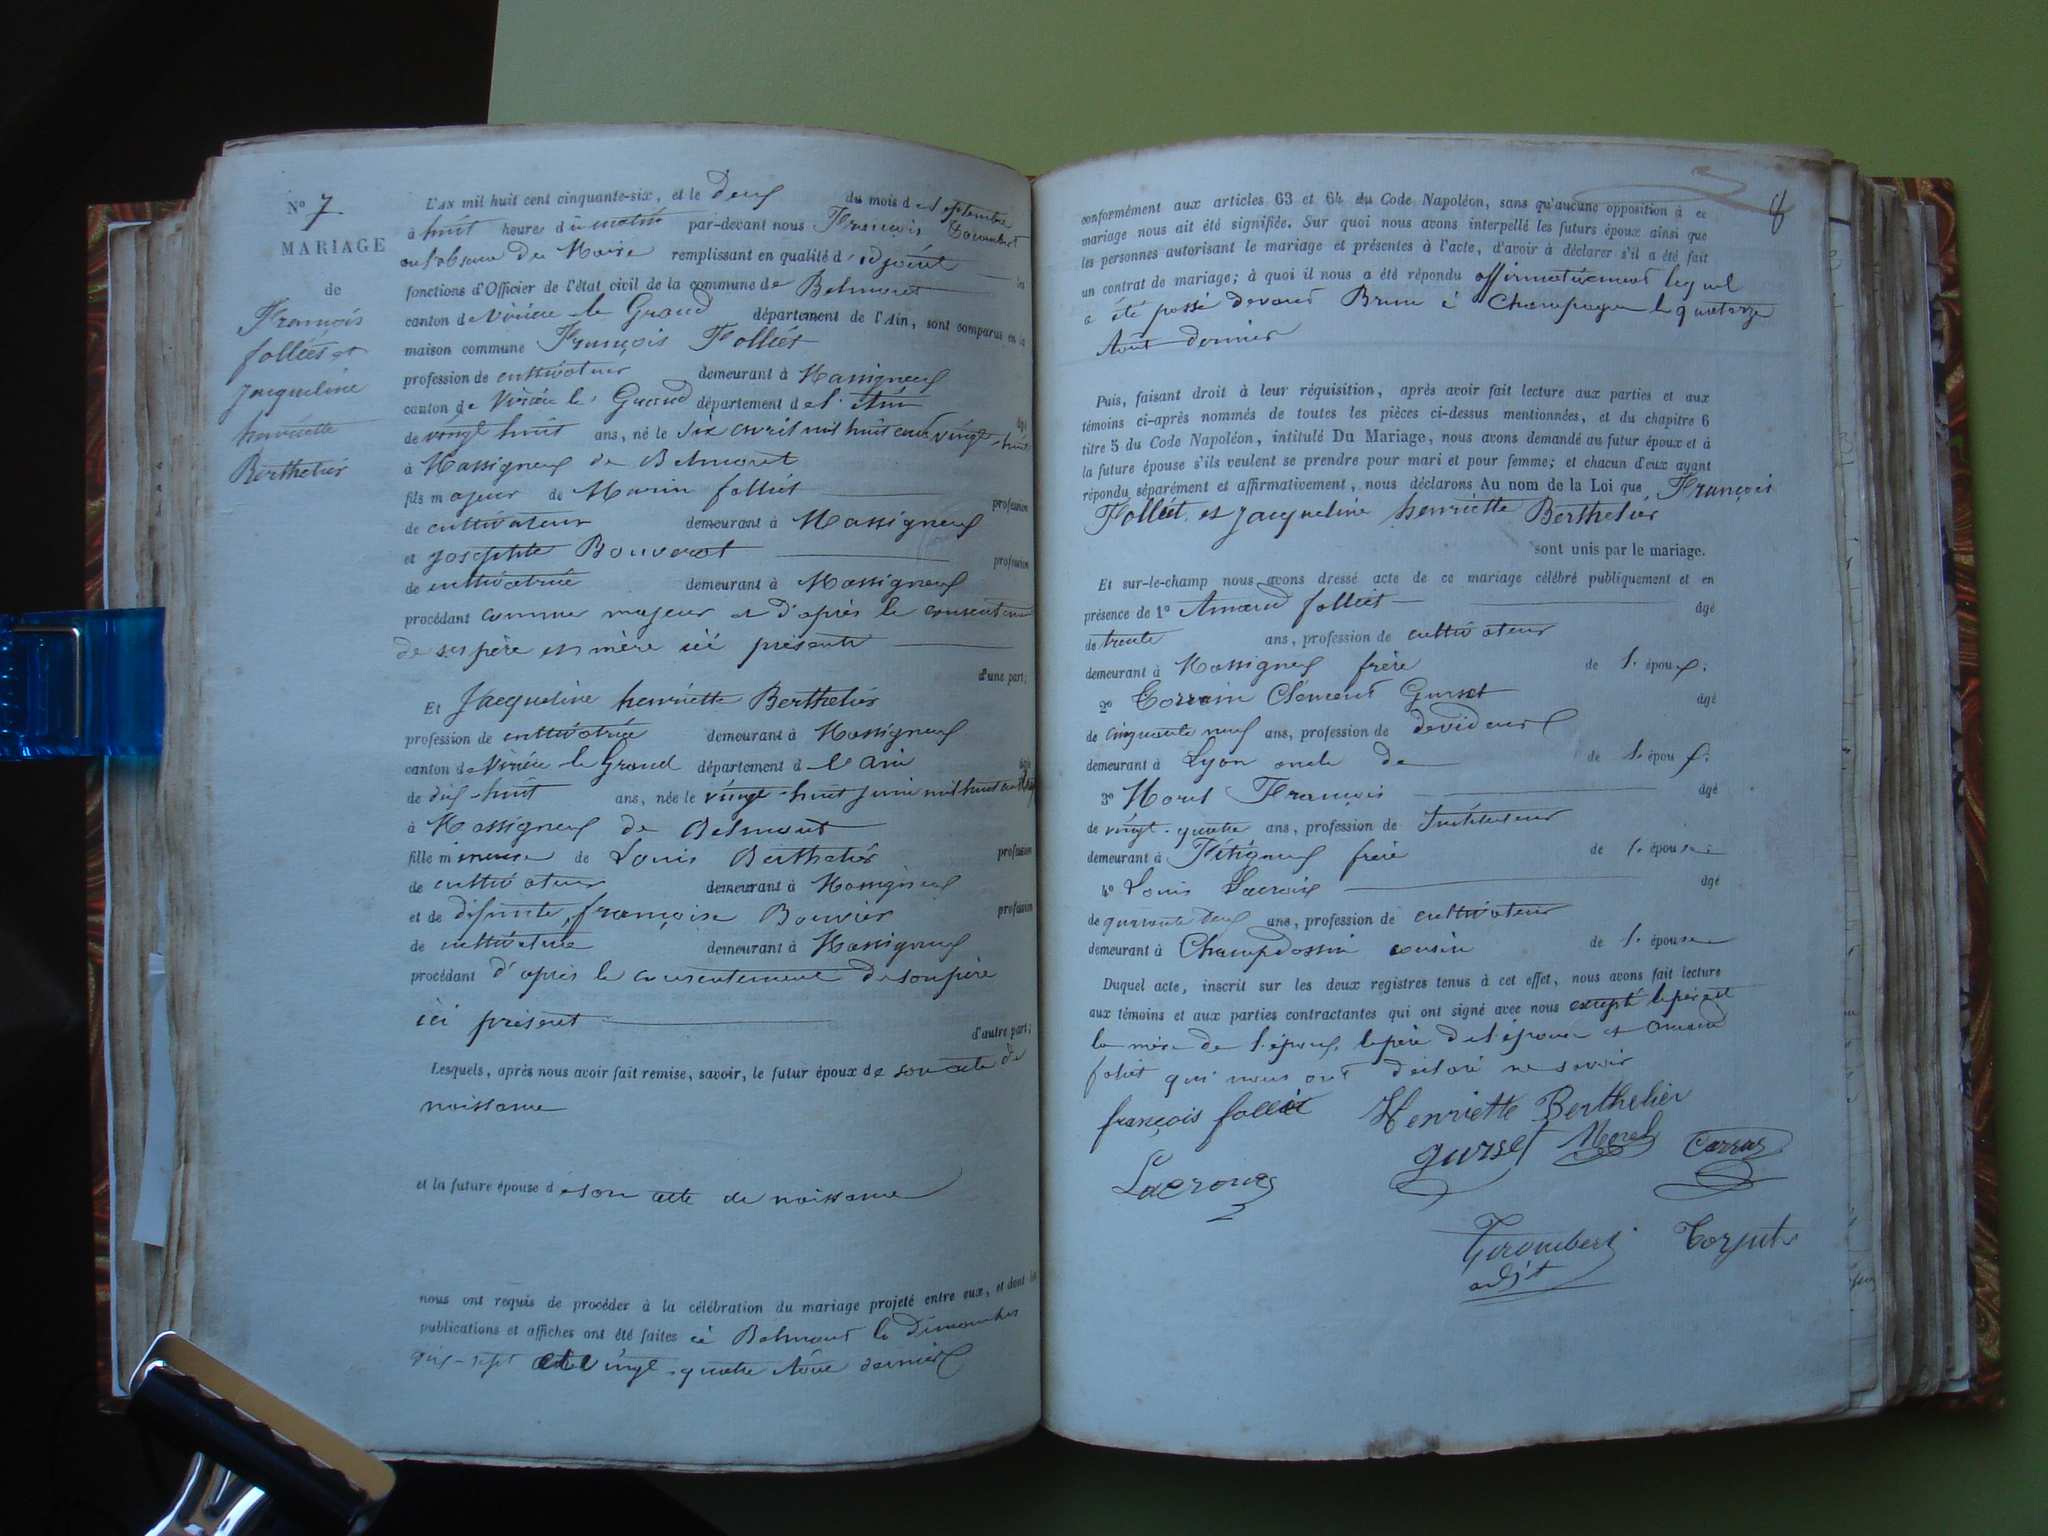 N° 7
MARIAGE
de
François
folliet et
Jacqueline
henriette
Berthelier
L'AN mil huit cent cinquante-six, et le deux du mois de septembre
à huit heures du matin par-devant nous François
en l'absence du Maire remplissant en qualité d'adjoint les
fonctions d'Officier de l'état civil de la commune de Belmont
canton de Virieu le Grand département de l'Ain, sont comparus en la
maison commune François Folliet
profession de cultivateur demeurant à Massigneux
canton de Virieu le Grand département de l'Ain âgé
de vingt huit ans, né le six avril mil huit cent vingt-huit
à Massigneux de Belmont
fils majeur de Marin folliet profession
de cultivateur demeurant à Massigneux
et Josephte Bouvard profession
de cultivatrice demeurant à Massigneux
procédant comme majeur et d'après le consentement
de ses père et mère ici présents
d'une part;
Et Jacqueline henriette Berthelier
profession de cultivatrice demeurant à Massigneux
canton de Virieu le Grand département de l'Ain âgée
de dix-huit ans, née le vingt-huit juin mil huit cent
à Massigneux de Belmont
fille mineure de Louis Berthelier profession
de cultivateur demeurant à Massigneux
et de défunte françoise Bouvier profession
de cultivatrice demeurant à Massigneux
procédant d'après le consentement de son père
ici présent
d'autre part;
Lesquels, après nous avoir fait remise, savoir, le futur époux de son acte de
naissance
et la future épouse de son acte de naissance
nous ont requis de procéder à la célébration du mariage projeté entre eux, et dont les
publications et affiches ont été faites à Belmont les dimanches
dix-sept et vingt-quatre Août dernier
8
conformément aux articles 63 et 64 du Code Napoléon, sans qu'aucune opposition à ce
mariage nous ait été signifiée. Sur quoi nous avons interpellé les futurs époux ainsi que
les personnes autorisant le mariage et présentes à l'acte, d'avoir à déclarer s'il a été fait
un contrat de mariage; à quoi il nous a été répondu affirmativement lequel
a été passé devant Brun à Champagne le quatorze
Août dernier
Puis, faisant droit à leur réquisition, après avoir fait lecture aux parties et aux
témoins ci-après nommés de toutes les pièces ci-dessus mentionnées, et du chapitre 6
titre 5 du Code Napoléon, intitulé Du Mariage, nous avons demandé au futur époux et à
la future épouse s'ils veulent se prendre pour mari et pour femme; et chacun d'eux ayant
répondu séparément et affirmativement, nous déclarons Au nom de la Loi que François
Folliet et Jacqueline henriette Berthelier
sont unis par le mariage.
Et sur-le-champ nous avons dressé acte de ce mariage célébré publiquement et en
présence de 1° Amand folliet âgé
de trente ans, profession de cultivateur
demeurant à Massigneux frère de l'époux;
2° Clément Gurset âgé
de cinquante neuf ans, profession de devideur
demeurant à Lyon oncle de de l'époux;
3° Morel François âgé
de vingt-quatre ans, profession de Instituteur
demeurant à Fitigneux frère de l'épouse
4° Louis Lacroix âgé
de quarante deux ans, profession de cultivateur
demeurant à Champdossin cousin de l'épouse
Duquel acte, inscrit sur les deux registres tenus à cet effet, nous avons fait lecture
aux témoins et aux parties contractantes qui ont signé avec nous excepté le père et
la mère de l'époux, le père de l'épouse et Amand
foliet qui nous ont déclaré ne savoir
françois folliet Henriette Berthelier
Lacroix gurset Morel Carraz
adjt